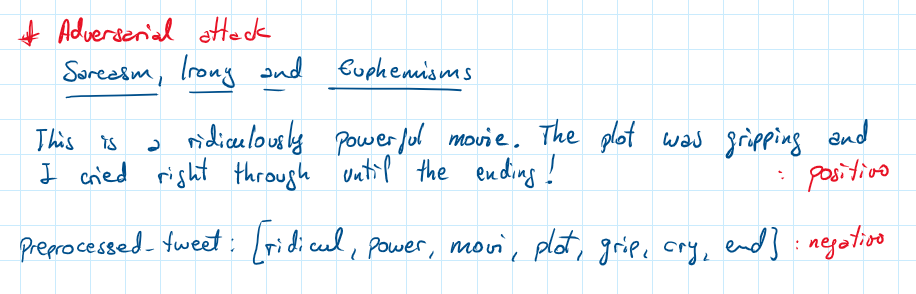 * Adversarial attack
Sarcasm, Irony and Euphemisms
This is a ridiculously powerful movie. The plot was gripping and
I cried right through until the ending! : positive
preprocessed_tweet: [ridicul, power, movi, plot, grip, cry, end] : negative